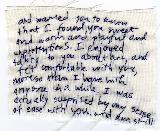 and wanted you to know
that I found you sweet
and warm and playful and
unpretentious. I enjoyed
talking to you about Ben, and
felt comfortable with you,
more so than I have with
anyone in a while. I was
actually surprised by my sense
of ease with you, and am still